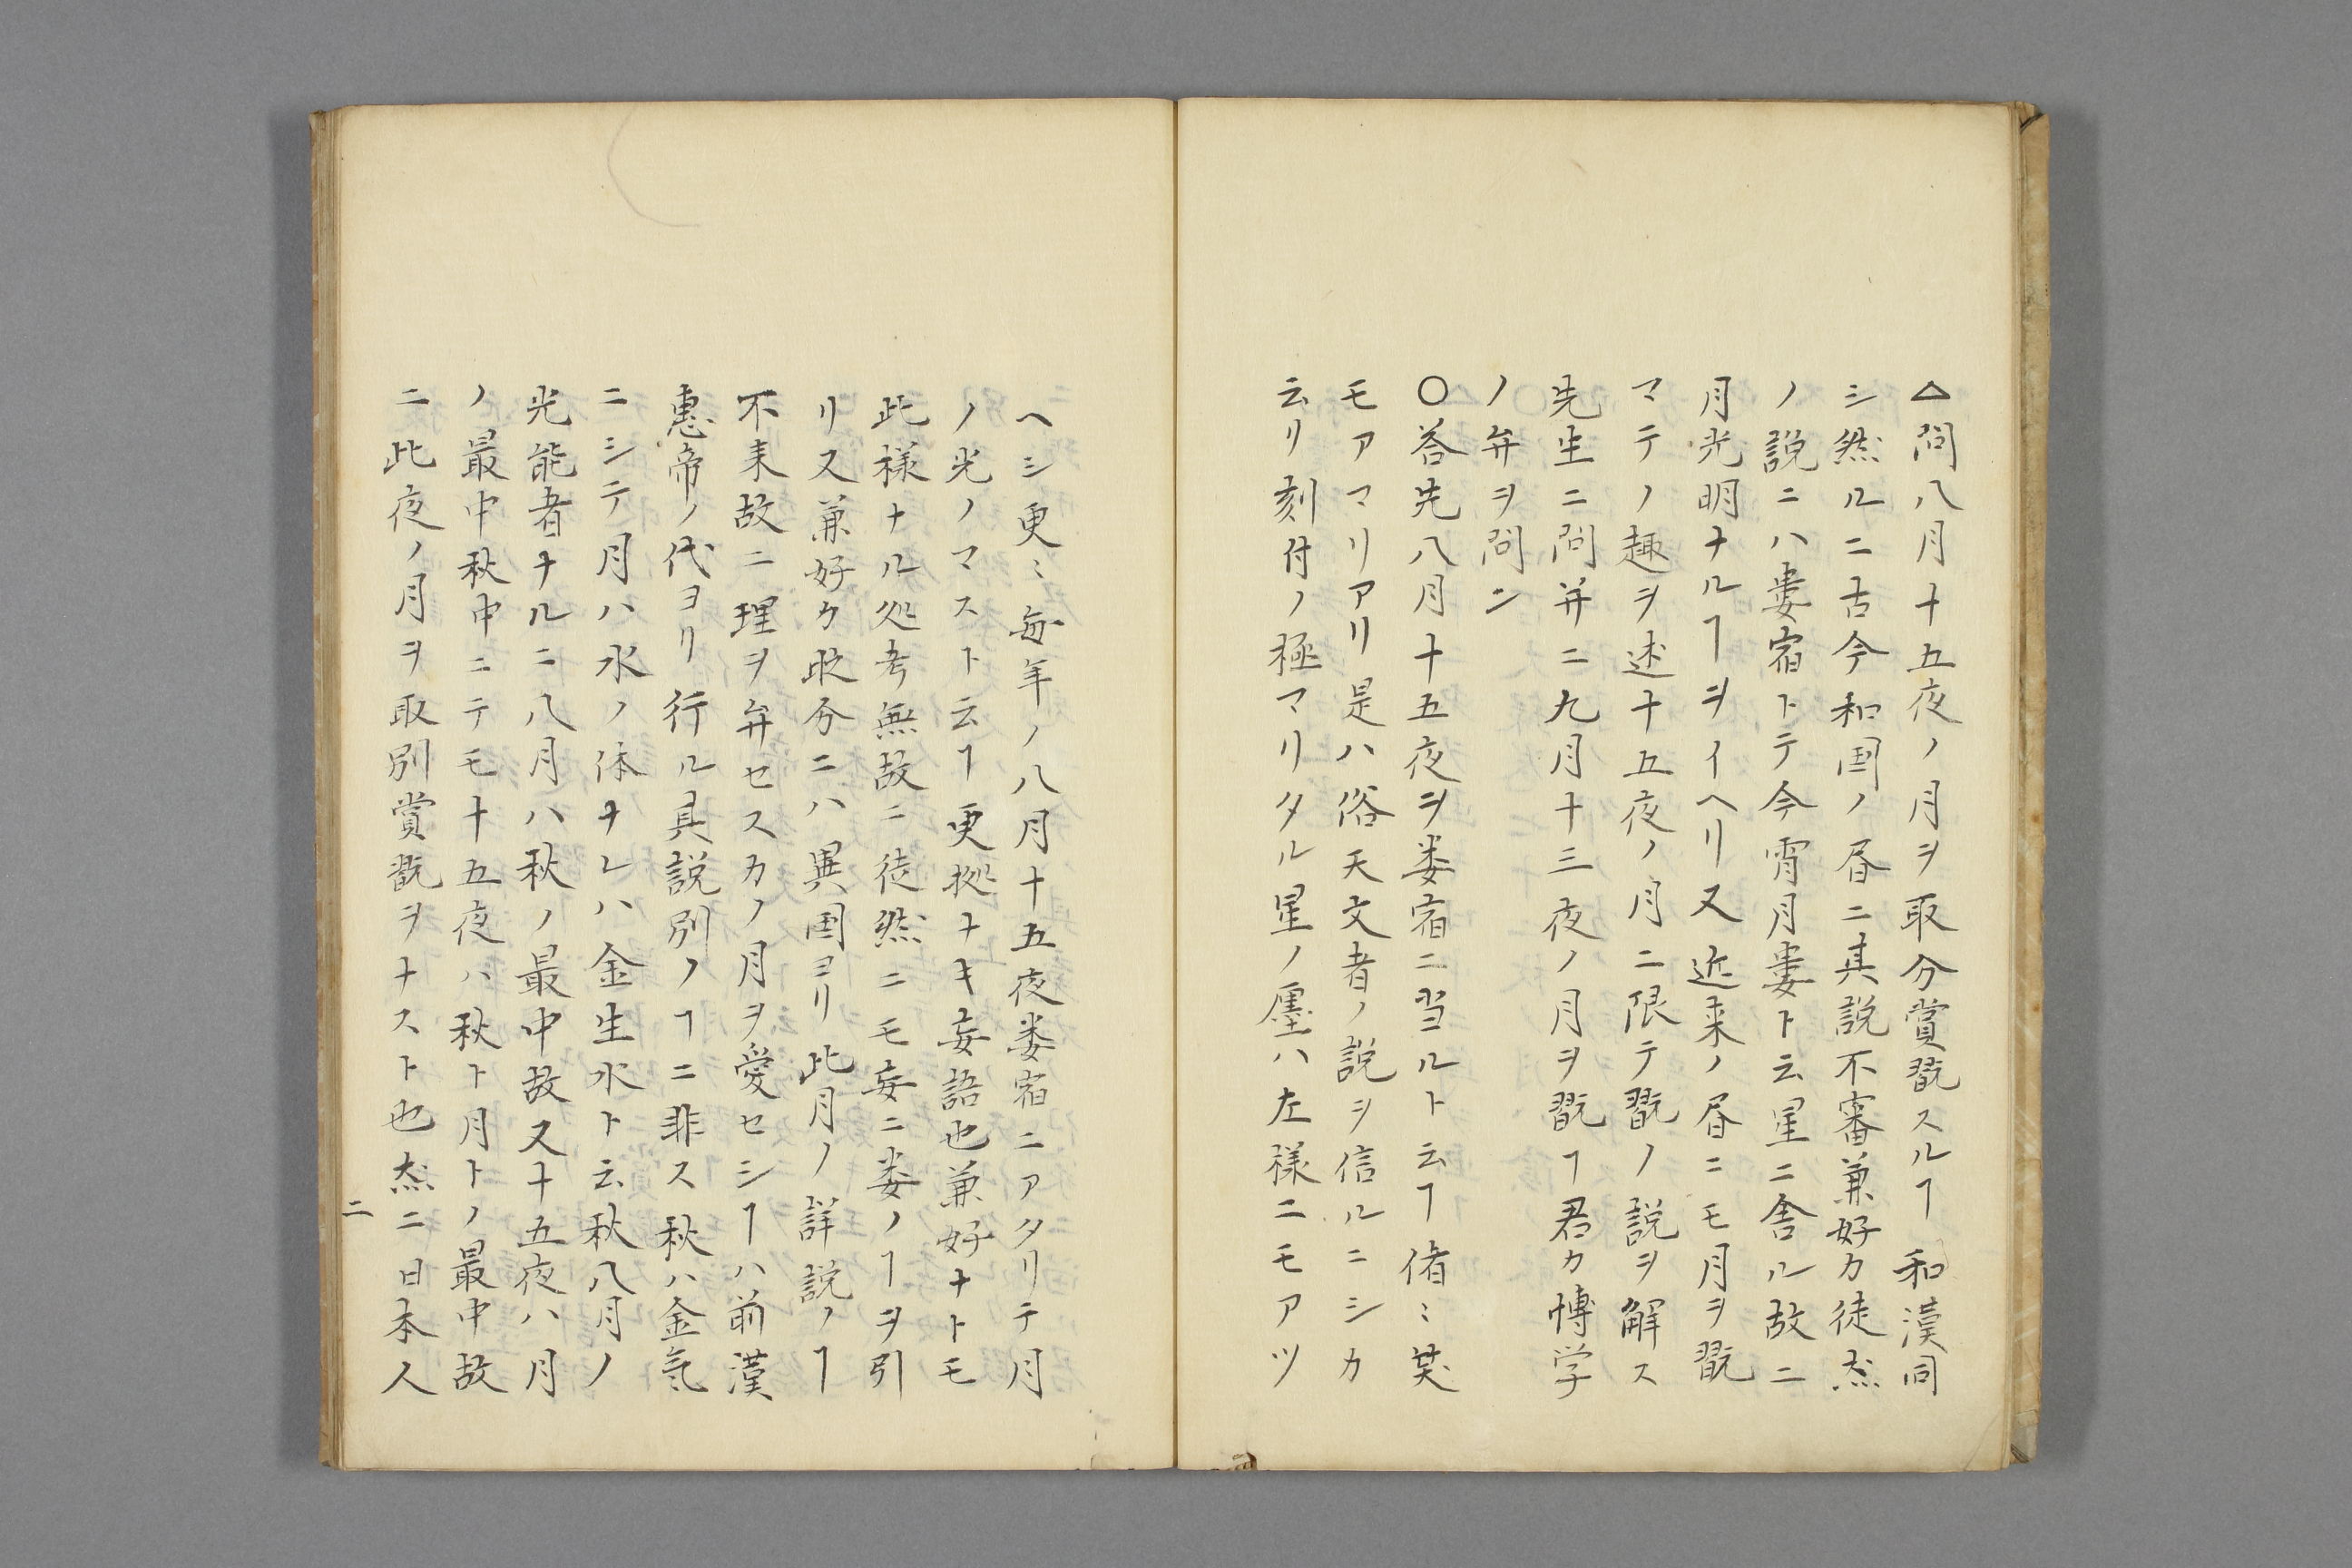 △問八月十五夜ノ月ヲ取分賞翫スルヿ和漢同
シ然ルニ古今和国ノ昏ニ其説不審兼好カ徒然
ノ説ニハ婁宿トテ今宵月婁ト云星ニ舎ル故ニ
月光明ナルヿヲイヘリ又近来ノ昏ニモ月ヲ翫
マテノ趣ヲ述十五夜ノ月ニ限テ翫ノ説ヲ解ス
先生ニ問并ニ九月十三夜ノ月ヲ翫ヿ君カ博学
ノ弁ヲ問ン
〇荅先八月十五夜ヲ婁宿ニ当ルト云ヿ偹〻笑
モアマリアリ是ハ俗天文者ノ説ヲ信ルニシカ
云リ刻付ノ極マリタル星ノ廛ハ左様ニモアツ
ヘシ更〻毎年ノ八月十五夜婁宿ニアタリテ月
ノ光ノマスト云ヿ更拠ナキ妄語也兼好ナトモ
此様ナル処考無故ニ徒然ニモ妄ニ婁ノヿヲ引
リ又兼好カ時分ニハ異国ヨリ此月ノ詳説ノヿ
不来故ニ理ヲ弁セスカノ月ヲ愛セシヿハ前漢
恵帝ノ代ヨリ行ル具説別ノヿニ非ス秋ハ金気
ニシテ月ハ水ノ体ナレハ金生水ト云秋八月ノ
光能者ナルニ八月ハ秋ノ最中故又十五夜ハ月
ノ最中秋中ニテモ十五夜ハ秋ト月トノ最中故
ニ此夜ノ月ヲ取別賞翫ヲナスト也然ニ日本人
二